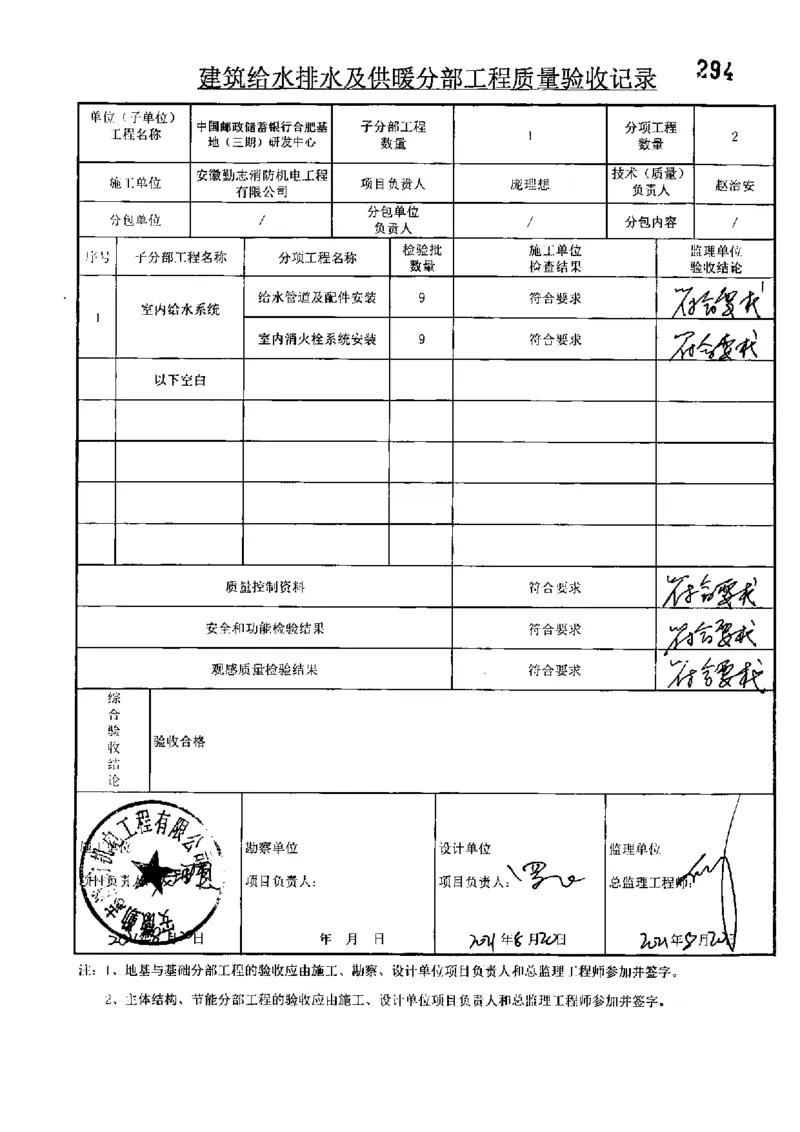 294
建筑给水排水及供暖分部工程质量验收记录
单位（子单位）
工程名称
中国邮政储蓄银行合肥基
地（三期）研发中心
子分部工程
数量
1
分项工程
数量
2
施工单位
安徽勤志消防机电工程
有限公司
项目负责人
庞理想
技术（质量）
负责人
赵治安
分包单位
/
分包单位
负责人
/
分包内容
/
序号
子分部工程名称
分项工程名称
检验批
数量
施工单位
检查结果
监理单位
验收结论
1
室内给水系统
给水管道及配件安装
9
符合要求
符合要求
室内消火栓系统安装
9
符合要求
符合要求
以下空白
质量控制资料
符合要求
符合要求
安全和功能检验结果
符合要求
符合要求
观感质量检验结果
符合要求
符合要求
综
合
验
收
结
论
验收合格
机电工程有限公司
项目负责人
勘察单位
项目负责人：
年 月 日
设计单位
项目负责人：
2021年8月20日
监理单位
总监理工程师：
2021年8月20日
注：1、地基与基础分部工程的验收应由施工、勘察、设计单位项目负责人和总监理工程师参加并签字。
2、主体结构、节能分部工程的验收应由施工、设计单位项目负责人和总监理工程师参加并签字。